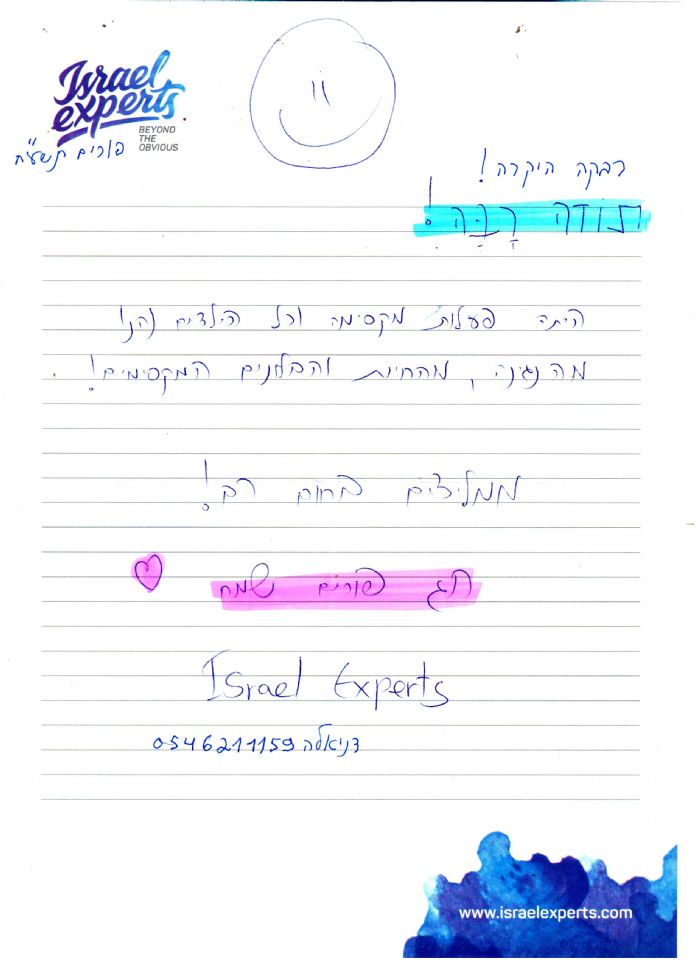 Israel
experts
BEYOND
THE
OBVIOUS
פורים תשע"ח
רבקה היקרה!
תודה רָבָּה!
היתה פעלות מקסימה וכל הילדים נהנו
מהנגינה, מהחיות והבלונים המקסימים!
ממליצים בחום רב!
חג פורים שמח
Israel Experts
דניאלה 0546211159
www.israelexperts.com